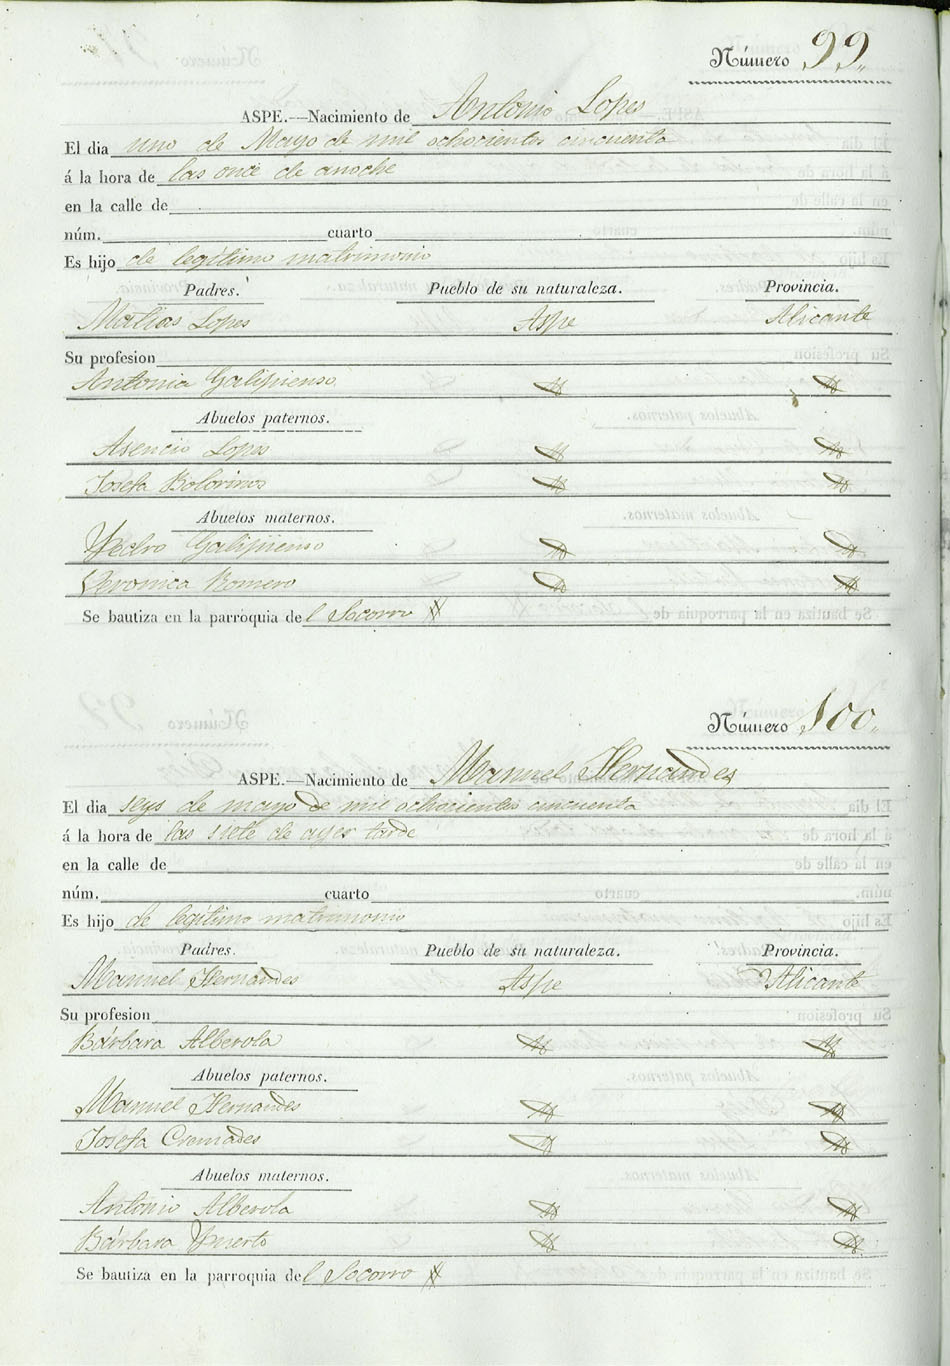 Número 99.
ASPE.—Nacimiento de Antonio Lopes
El dia uno de Mayo de mil ochocientos cincuenta
á la hora de las once de anoche
en la calle de
núm. cuarto
Es hijo de legítimo matrimonio
Padres. Pueblo de su naturaleza. Provincia.
Matias Lopes Aspe Alicante
Su profesion
Antonia Galipienso
Abuelos paternos.
Asencio Lopes
Josefa Bolorinos
Abuelos maternos.
Pedro Galipienso
Veronica Romero
Se bautiza en la parroquia del Socorro
Número 100.
ASPE.—Nacimiento de Manuel Hernandes
El dia seys de mayo de mil ochocientos cincuenta
á la hora de las siete de ayer tarde
en la calle de
núm. cuarto
Es hijo de legítimo matrimonio
Padres. Pueblo de su naturaleza. Provincia.
Manuel Hernandes Aspe Alicante
Su profesion
Bárbara Alberola
Abuelos paternos.
Manuel Hernandes
Josefa Cremades
Abuelos maternos.
Antonio Alberola
Bárbara Puerto
Se bautiza en la parroquia del Socorro